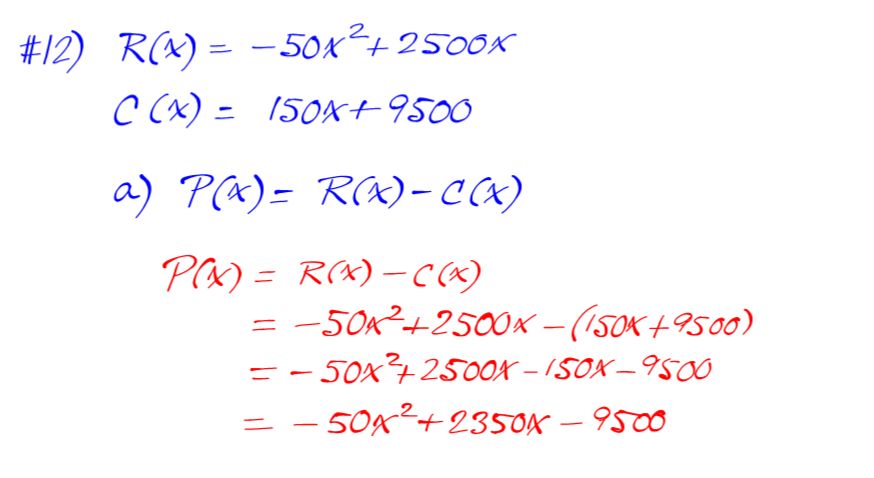 #12) R(x) = -50x²+2500x
C(x) = 150x+9500
a) P(x) = R(x)-C(x)
P(x) = R(x)-C(x)
= -50x²+2500x-(150x+9500)
= -50x²+2500x-150x-9500
= -50x²+2350x-9500